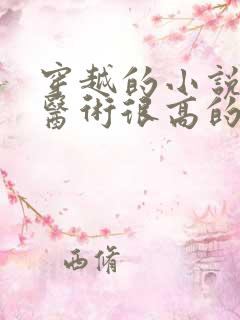 穿越的小說
醫術很高的
西脩